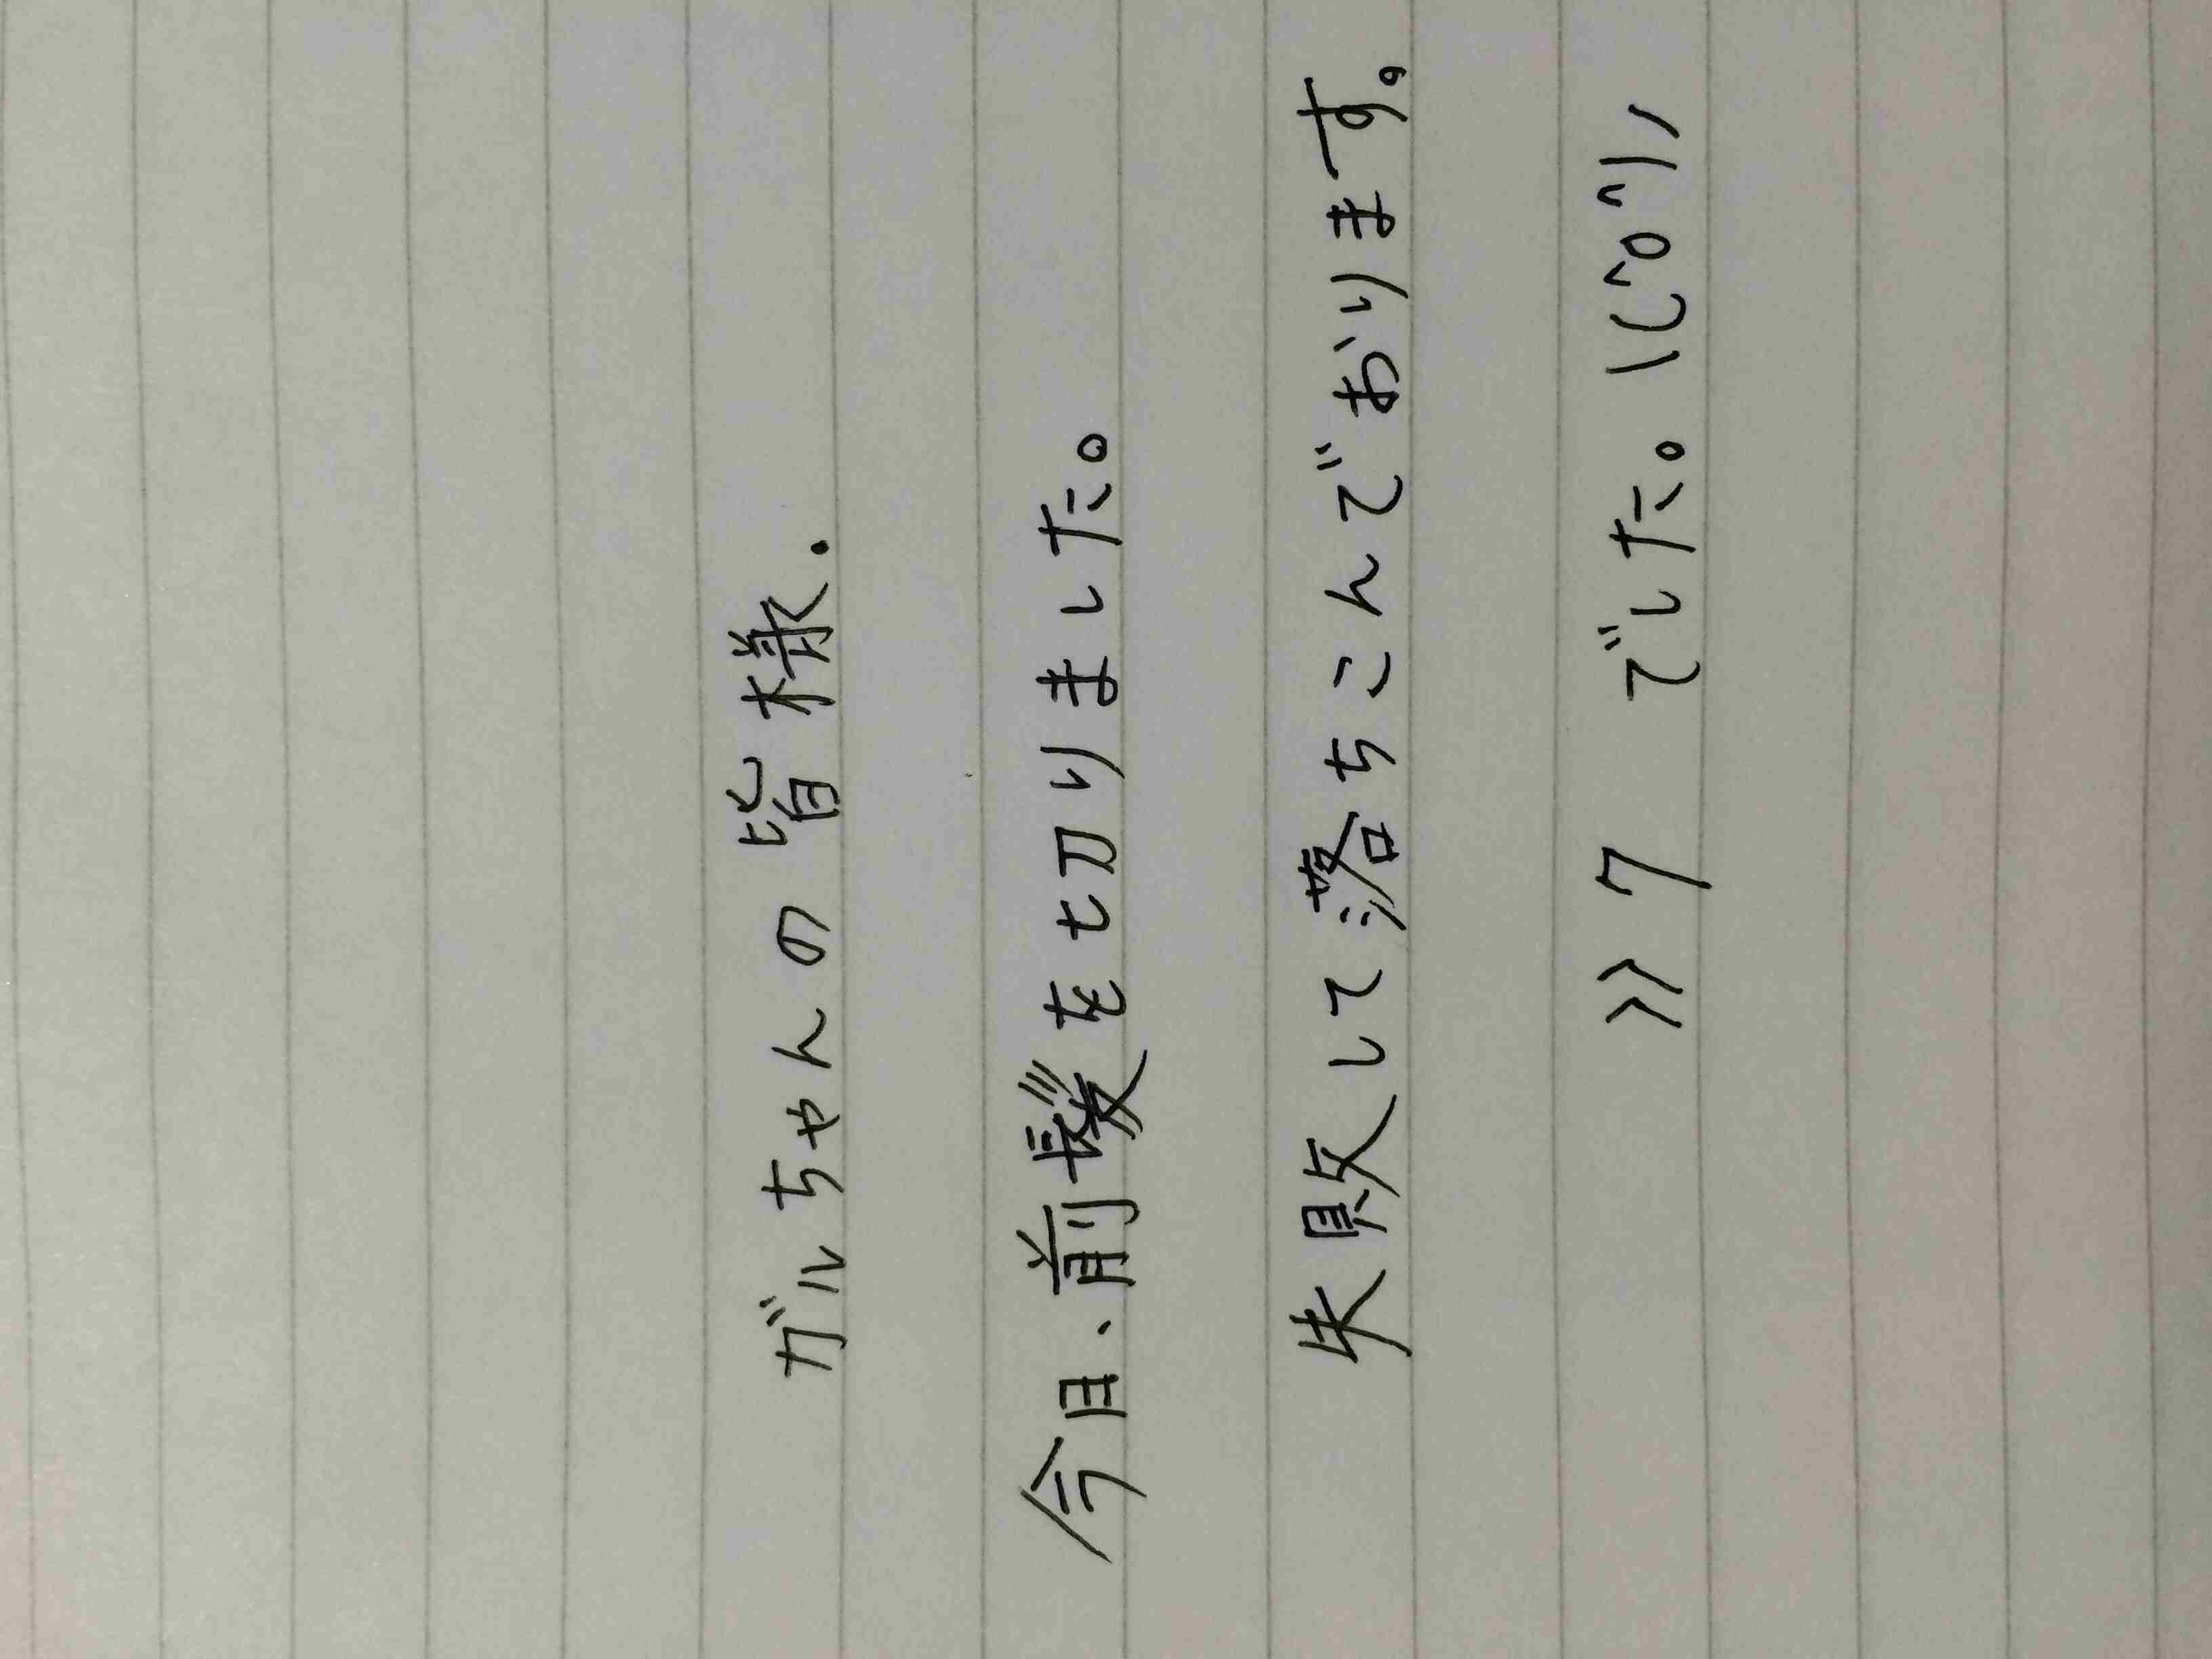 ガルちゃんの皆様.
今日、前髪を切りました。
失敗して落ちこんでおります。
>>7 でした。\(^o^)/